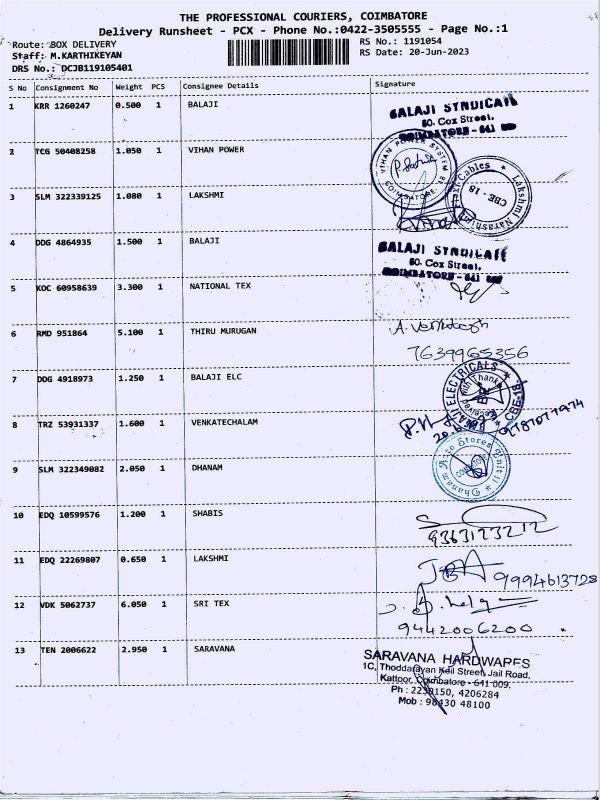 THE PROFESSIONAL COURIERS, COIMBATORE
Delivery Runsheet - PCX - Phone No.:0422-3505555 - Page No.:1
Route: BOX DELIVERY RS No.: 1191054
Staff: M.KARTHIKEYAN RS Date: 20-Jun-2023
DRS No.: DCJB119105401
S No Consignment No Weight PCS Consignee Details Signature
1 KRR 1260247 0.500 1 BALAJI
BALAJI SYNDICATE
80, Cox Street,
COIMBATORE - 641
2 TCG 50408258 1.050 1 VIHAN POWER
VIHAN POWER SYSTEM
COIMBATORE
3 SLM 322339125 1.080 1 LAKSHMI
Lakshmi Narashima Flexi Cables
CBE - 18
4 DDG 4864935 1.500 1 BALAJI
BALAJI SYNDICATE
80, Cox Street,
COIMBATORE - 641
5 KOC 60958639 3.300 1 NATIONAL TEX
6 RMD 951864 5.100 1 THIRU MURUGAN
A. Venkatesh
7639965356
7 DDG 4918973 1.250 1 BALAJI ELC
ELECTRICALS
With Thanks
Received
8 TRZ 53931337 1.600 1 VENKATECHALAM
9 SLM 322349082 2.050 1 DHANAM
Dhanam Auto Stores Unit II
10 EDQ 10599576 1.200 1 SHABIS
9363123212
11 EDQ 22269807 0.650 1 LAKSHMI
9994613728
12 VDK 5062737 6.050 1 SRI TEX
9442006200
13 TEN 2006622 2.950 1 SARAVANA
SARAVANA HARDWARES
1C, Thoddarayan Koil Street, Jail Road,
Kattoor, Coimbatore - 641 009.
Ph : 2230150, 4206284
Mob : 98430 48100